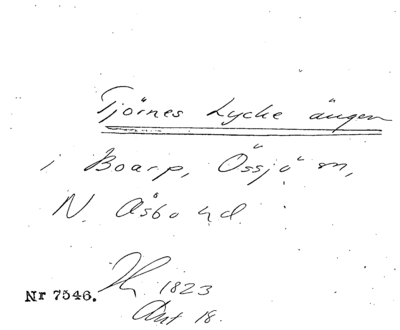 Tjörnes Lycke ängen
i Boarp, Össjö sn,
N. Åsbo hd.
1823
Nr 7546.
Ant 18.